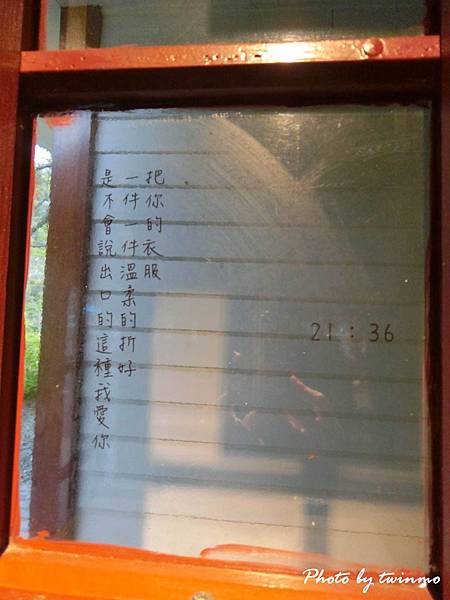 把你的衣服
一件一件溫柔的折好
是不會說出口的這種我愛你
21：36
Photo by twinmo